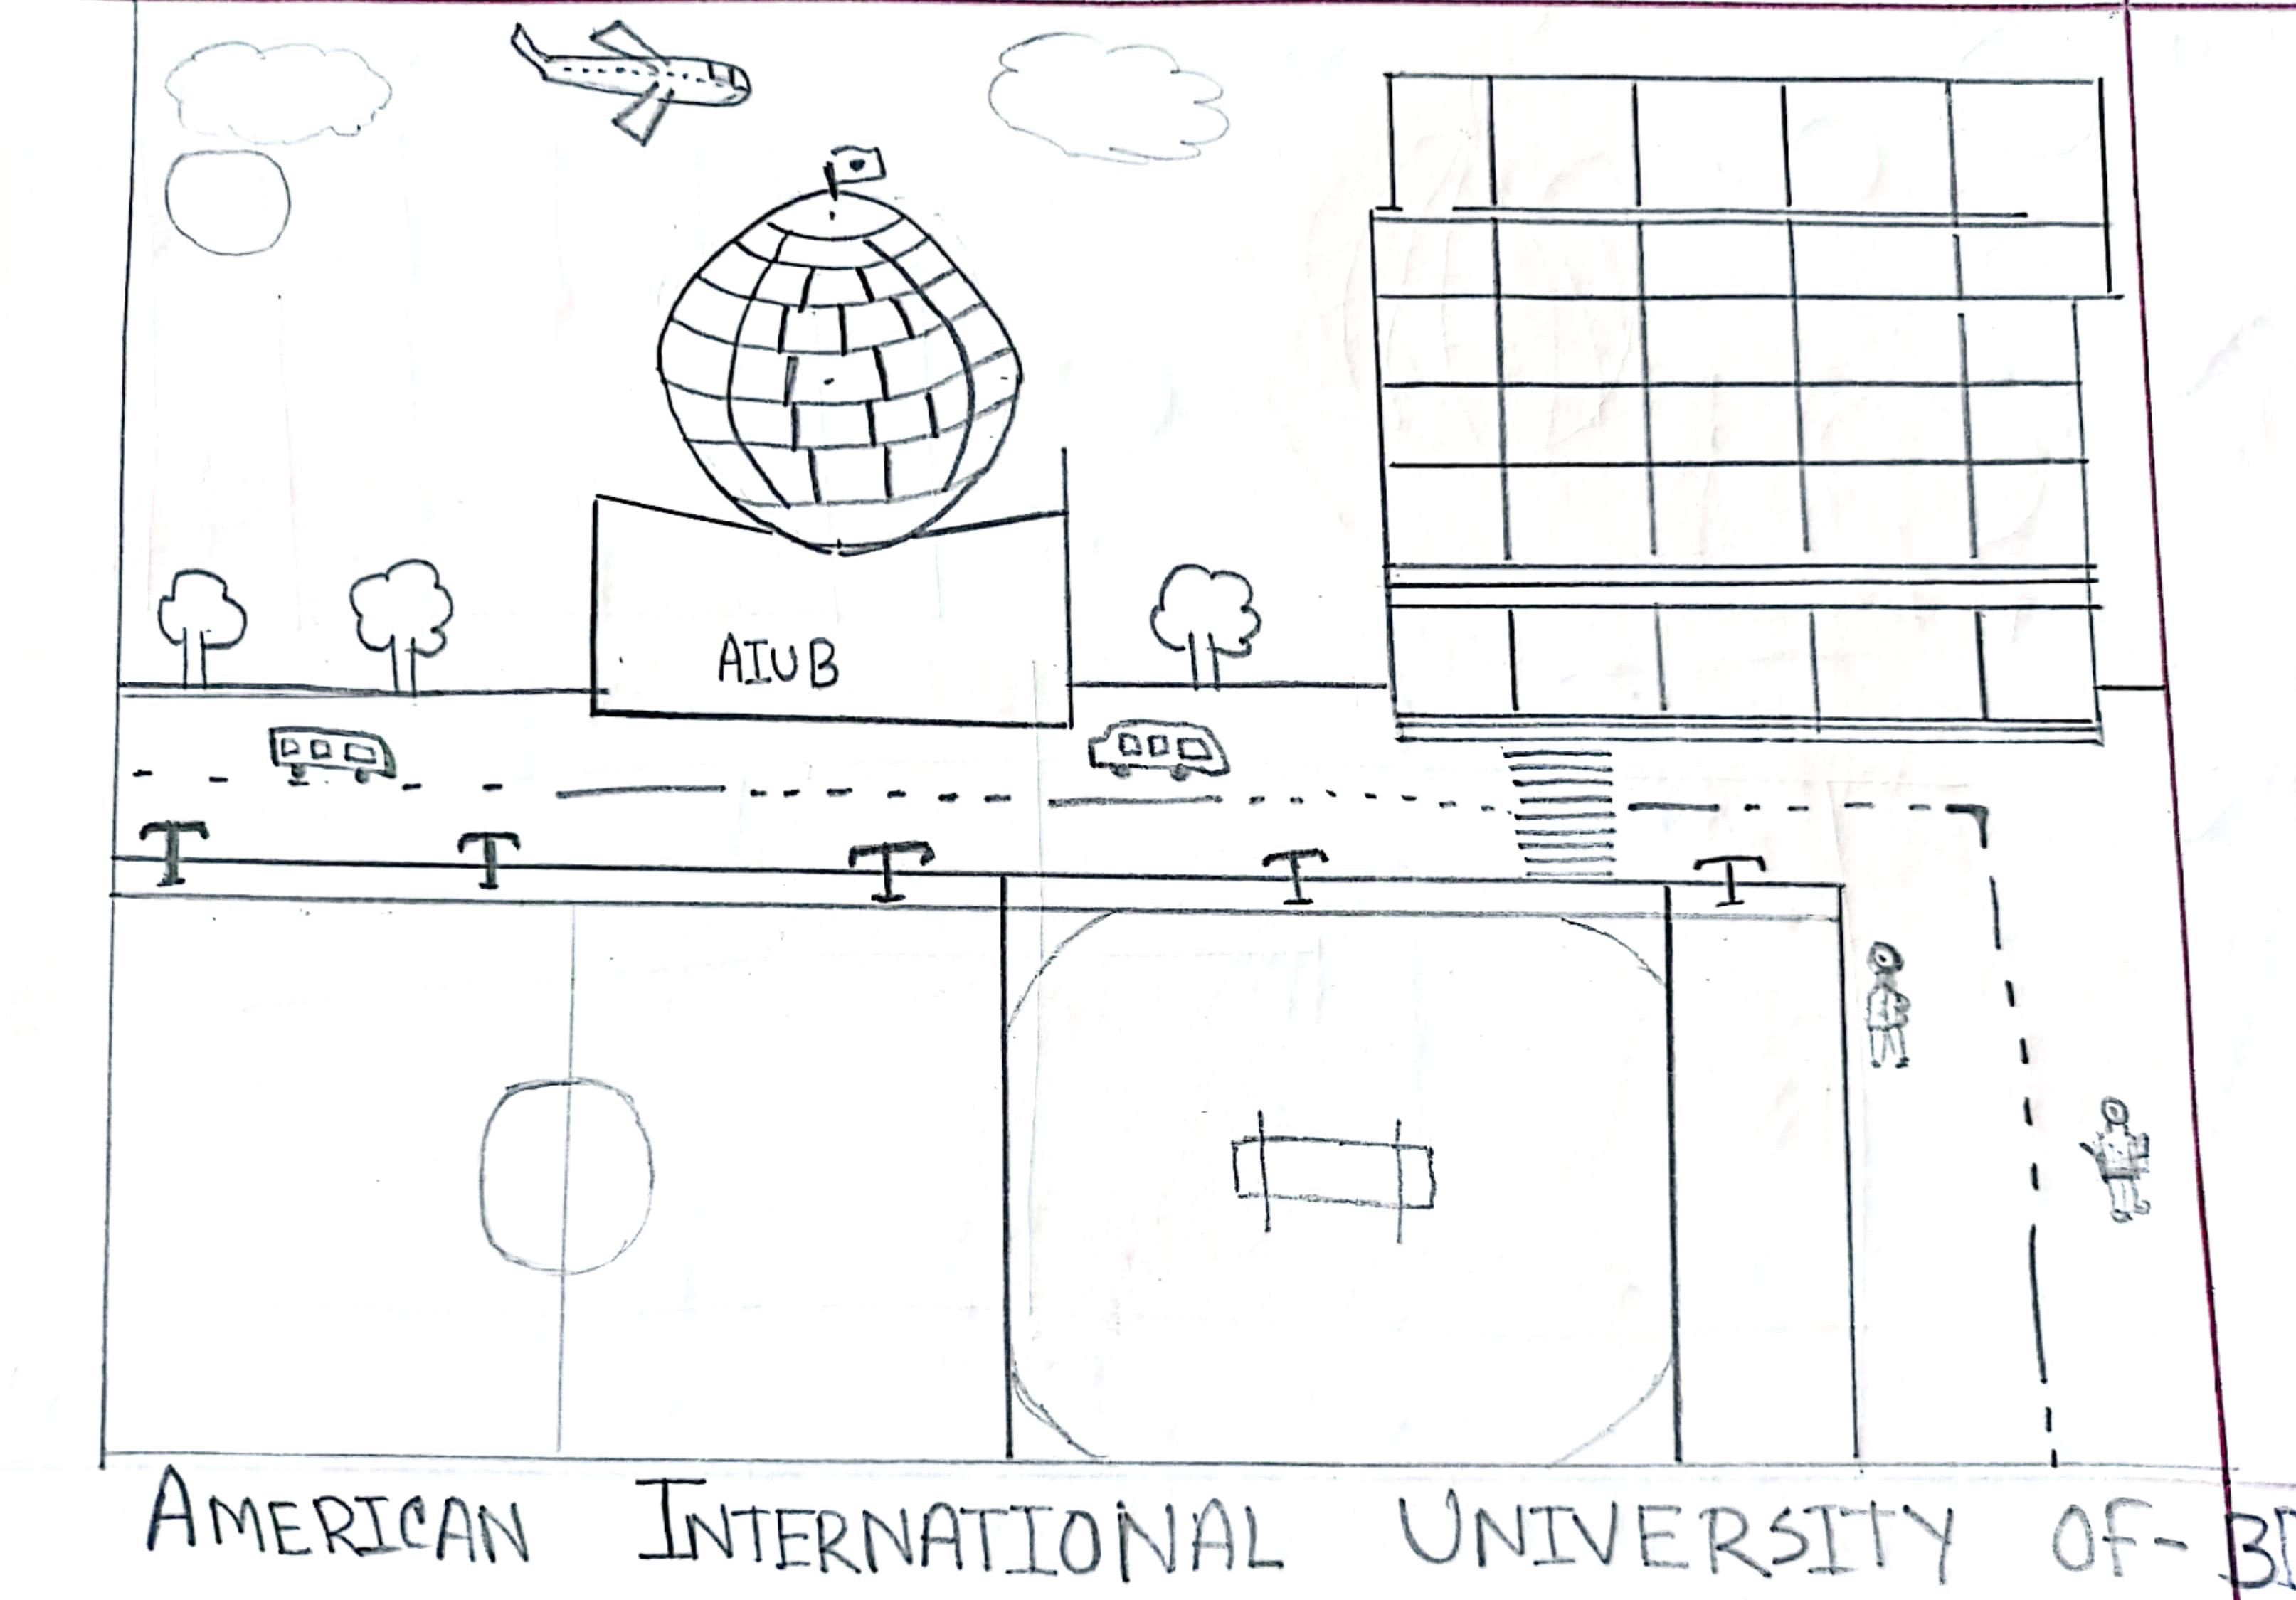 AIUB
AMERICAN INTERNATIONAL UNIVERSITY OF-BD